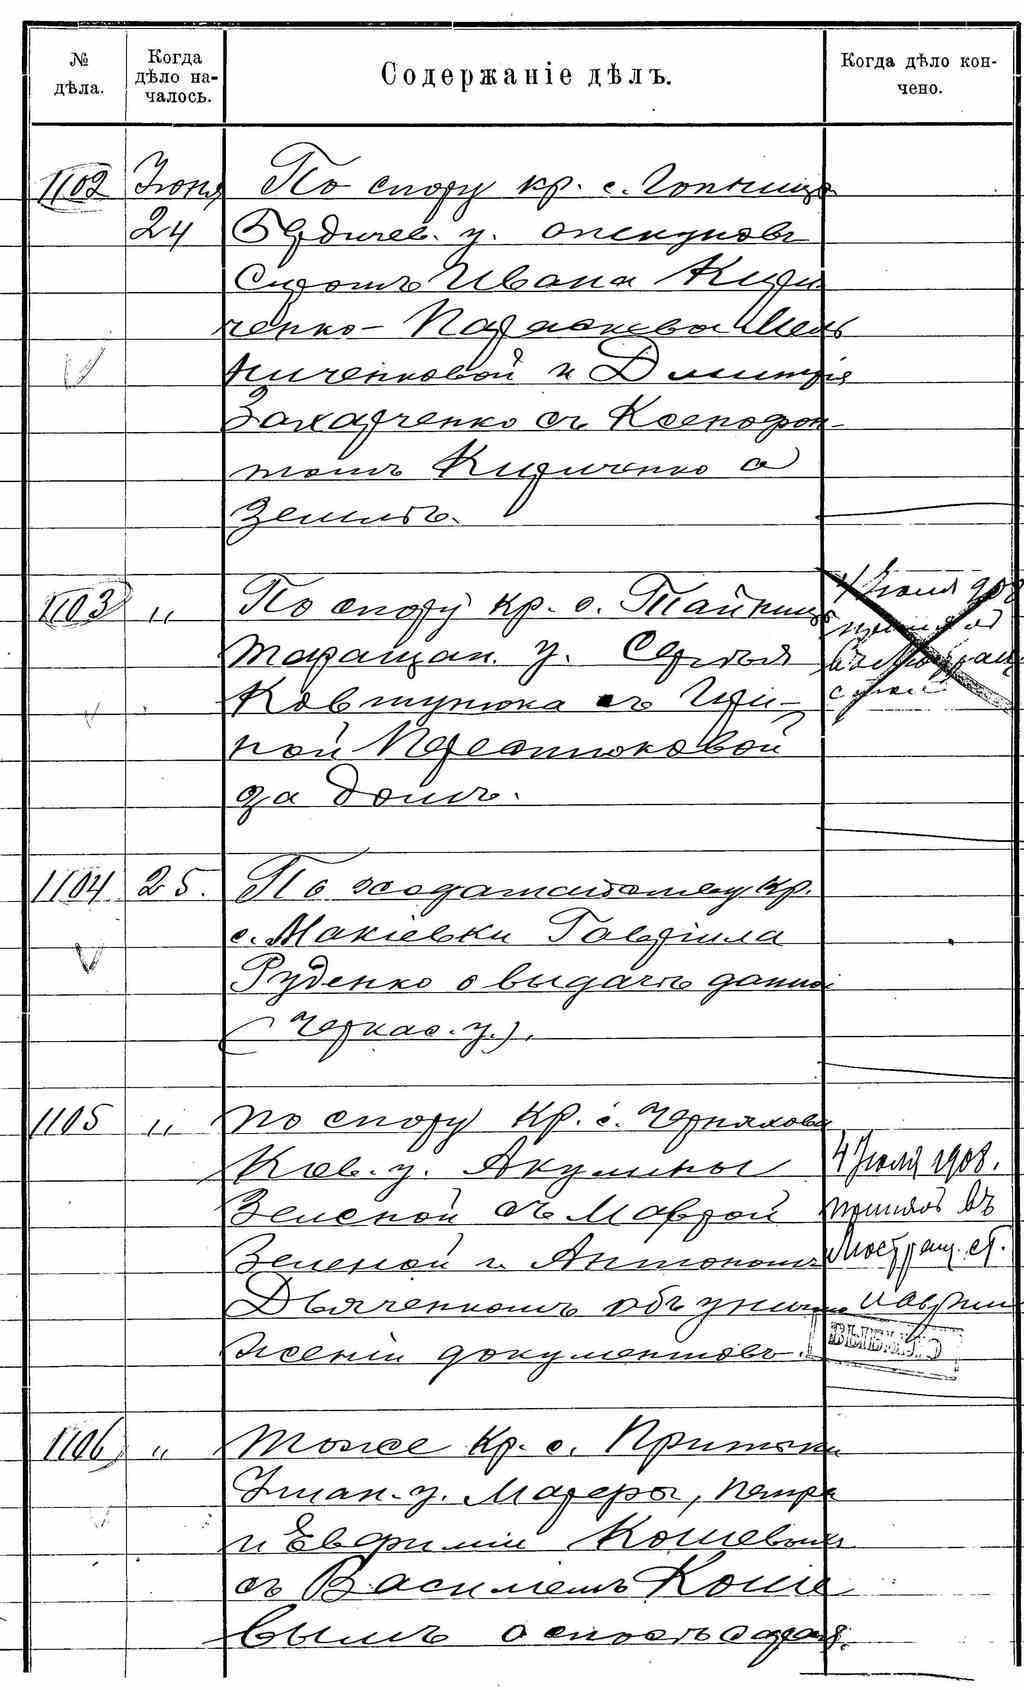 № дѣла.
Когда дѣло на-
чалось.
Содержаніе дѣлъ.
Когда дѣло кон-
чено.
1102 Іюня По спору кр. с.
24 Бердичев. у. опекуновъ
сиротъ Ивана Кири-
ченко - Параскевы Мель
ниченковой и Дмитрія
Захарченко съ Ксенофон-
томъ Кириченко о
землѣ.
1103 " По спору кр. с.
Таращан. у. Сергѣя
Ковтунюка съ Ири-
ной
за домъ.
4 Іюля 908
1104 25. По ходатайству кр.
с. Макіевки Гавріила
Руденко о выдачѣ данной
(Черкас. у.).
1105 " По спору кр. с. Черняхова
Кіев. у. Акулины
Зеленой съ Маврой
Зеленой и Антономъ
Дьяченкомъ объ уничто
женіи документовъ.
4 Іюля 1908.
принялъ въ
1106 " Тоже кр. с. Притыки
Уман. у. Петра
и Евфиміи Кошевыхъ
съ Василіемъ Коше
вымъ о